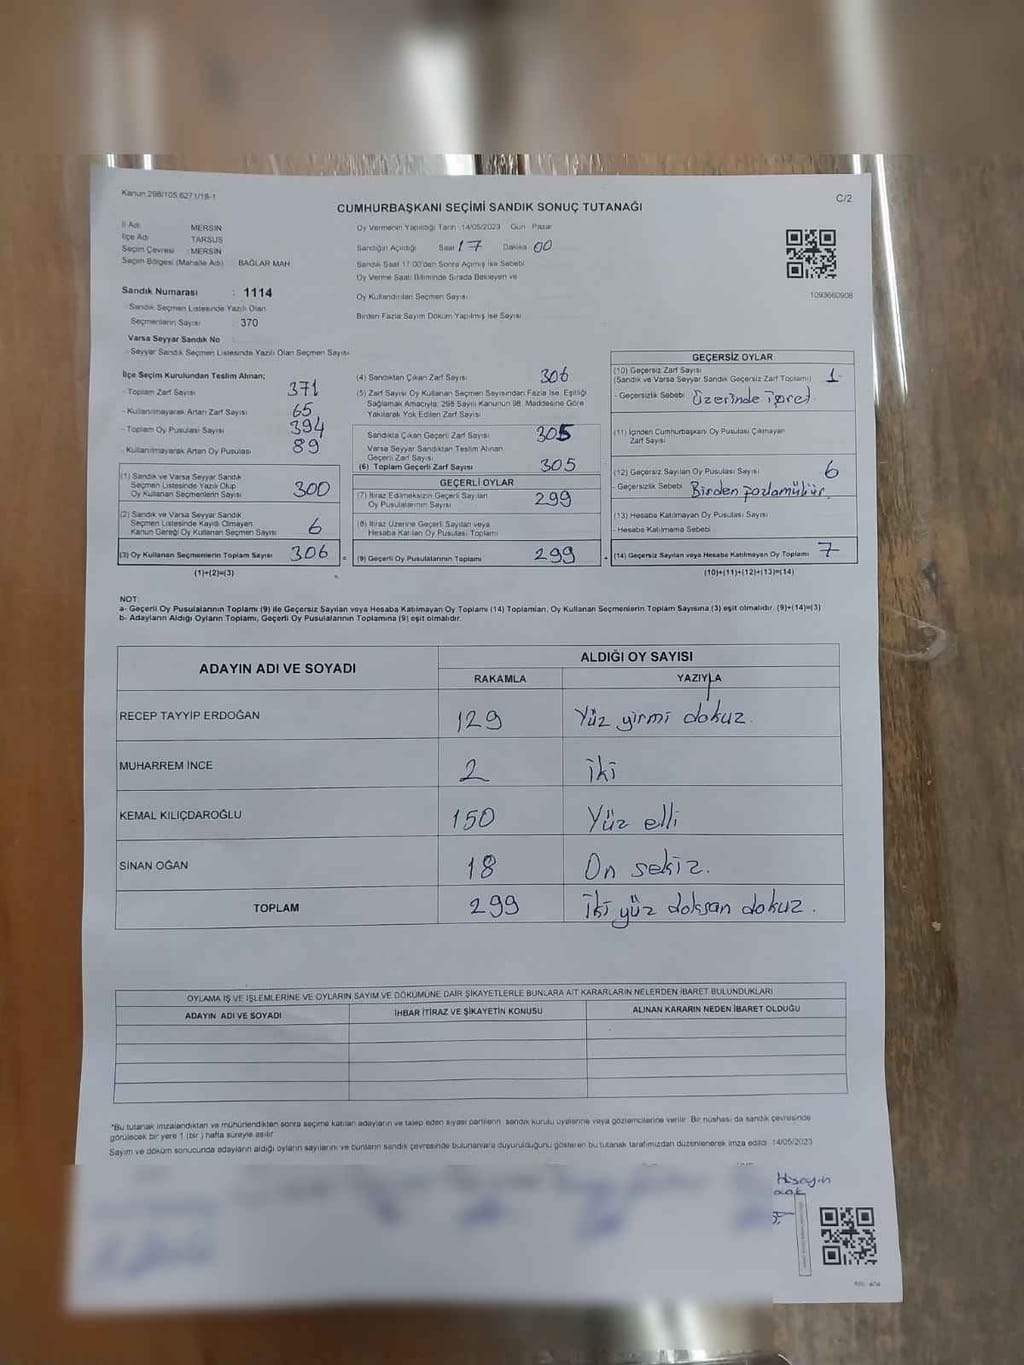 Kanun 298/105,6271/18-1
C/2
CUMHURBAŞKANI SEÇİMİ SANDIK SONUÇ TUTANAĞI
İl Adı MERSİN
İlçe Adı TARSUS
Seçim Çevresi : MERSİN
Seçim Bölgesi (Mahalle Adı) : BAĞLAR MAH
Sandık Numarası : 1114
Sandık Seçmen Listesinde Yazılı Olan
Seçmenlerin Sayısı : 370
Varsa Seyyar Sandık No
Seyyar Sandık Seçmen Listesinde Yazılı Olan Seçmen Sayısı
Oy Vermenin Yapıldığı Tarih : 14/05/2023 Gün : Pazar
Sandığın Açıldığı Saat 17 Dakika 00
Sandık Saat 17:00'den Sonra Açılmış İse Sebebi
Oy Verme Saati Bitiminde Sırada Bekleyen ve
Oy Kullandırılan Seçmen Sayısı
Birden Fazla Sayım Döküm Yapılmış İse Sayısı
1093660908
İlçe Seçim Kurulundan Teslim Alınan;
- Toplam Zarf Sayısı 371
- Kullanılmayarak Artan Zarf Sayısı 65
- Toplam Oy Pusulası Sayısı 394
- Kullanılmayarak Artan Oy Pusulası 89
(1) Sandık ve Varsa Seyyar Sandık
Seçmen Listesinde Yazılı Olup
Oy Kullanan Seçmenlerin Sayısı 300
(2) Sandık ve Varsa Seyyar Sandık
Seçmen Listesinde Kayıtlı Olmayan
Kanun Gereği Oy Kullanan Seçmen Sayısı 6
(3) Oy Kullanan Seçmenlerin Toplam Sayısı 306
(1)+(2)=(3)
(4) Sandıktan Çıkan Zarf Sayısı 306
(5) Zarf Sayısı Oy Kullanan Seçmen Sayısından Fazla İse, Eşitliği
Sağlamak Amacıyla, 298 Sayılı Kanunun 98. Maddesine Göre
Yakılarak Yok Edilen Zarf Sayısı
Sandıkta Çıkan Geçerli Zarf Sayısı 305
Varsa Seyyar Sandıktan Teslim Alınan
Geçerli Zarf Sayısı
(6) Toplam Geçerli Zarf Sayısı 305
GEÇERLİ OYLAR
(7) İtiraz Edilmeksizin Geçerli Sayılan
Oy Pusulalarının Sayısı 299
(8) İtiraz Üzerine Geçerli Sayılan veya
Hesaba Katılan Oy Pusulası Toplamı
= (9) Geçerli Oy Pusulalarının Toplamı 299
GEÇERSİZ OYLAR
(10) Geçersiz Zarf Sayısı
(Sandık ve Varsa Seyyar Sandık Geçersiz Zarf Toplamı) 1
- Geçersizlik Sebebi üzerinde işaret
(11) İçinden Cumhurbaşkanı Oy Pusulası Çıkmayan
Zarf Sayısı
(12) Geçersiz Sayılan Oy Pusulası Sayısı 6
- Geçersizlik Sebebi Birden
(13) Hesaba Katılmayan Oy Pusulası Sayısı
- Hesaba Katılmama Sebebi
+ (14) Geçersiz Sayılan veya Hesaba Katılmayan Oy Toplamı 7
(10)+(11)+(12)+(13)=(14)
NOT:
a- Geçerli Oy Pusulalarının Toplamı (9) ile Geçersiz Sayılan veya Hesaba Katılmayan Oy Toplamı (14) Toplamları, Oy Kullanan Seçmenlerin Toplam Sayısına (3) eşit olmalıdır. (9)+(14)=(3)
b- Adayların Aldığı Oyların Toplamı, Geçerli Oy Pusulalarının Toplamına (9) eşit olmalıdır.
ADAYIN ADI VE SOYADI
ALDIĞI OY SAYISI
RAKAMLA YAZIYLA
RECEP TAYYİP ERDOĞAN 129 Yüz yirmi dokuz.
MUHARREM İNCE 2 iki
KEMAL KILIÇDAROĞLU 150 Yüz elli
SİNAN OĞAN 18 On sekiz.
TOPLAM 299 iki yüz doksan dokuz.
OYLAMA İŞ VE İŞLEMLERİNE VE OYLARIN SAYIM VE DÖKÜMÜNE DAİR ŞİKAYETLERLE BUNLARA AİT KARARLARIN NELERDEN İBARET BULUNDUKLARI
ADAYIN ADI VE SOYADI İHBAR İTİRAZ VE ŞİKAYETİN KONUSU ALINAN KARARIN NEDEN İBARET OLDUĞU
*Bu tutanak imzalandıktan ve mühürlendikten sonra seçime katılan adayların ve talep eden siyasi partilerin sandık kurulu üyelerine veya gözlemcilerine verilir. Bir nüshası da sandık çevresinde
görülecek bir yere 1 (bir) hafta süreyle asılır
Sayım ve döküm sonucunda adayların aldığı oyların sayılarını ve bunların sandık çevresinde bulunanlara duyurulduğunu gösteren bu tutanak tarafımızdan düzenlenerek imza edildi. 14/05/2023